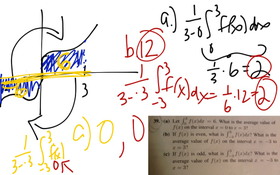 a.) 1/3-0 ∫₀³ f(x)dx
1/3 · 6 = 2
b) 12
1/3--3 ∫₋₃³ f(x)dx = 1/6 · 12 = 2
3
c) 0, 0
1/3--3 ∫₋₃³ f(x)
0
39. (a) Let ∫₀³ f(x)dx = 6. What is the average value of
f(x) on the interval x = 0 to x = 3?
(b) If f(x) is even, what is ∫₋₃³ f(x)dx? What is the
average value of f(x) on the interval x = -3 to
x = 3?
(c) If f(x) is odd, what is ∫₋₃³ f(x)dx? What is the
average value of f(x) on the interval x = -3 to
x = 3?